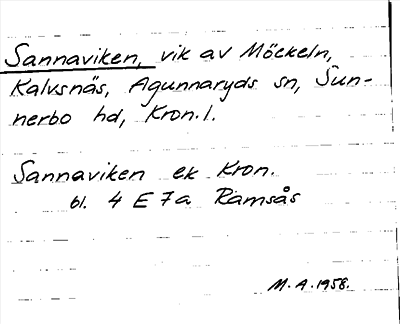 Sannaviken, vik av Möckeln,
Kalvsnäs, Agunnaryds sn, Sun-
nerbo hd, Kron.l.
Sannaviken ek Kron.
bl. 4 E 7a Ramsås
M.A. 1958.